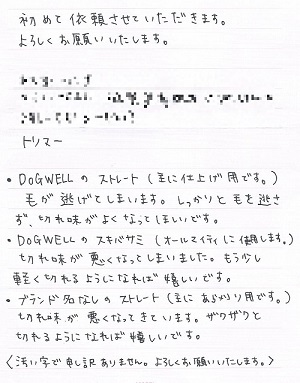 初めて依頼させていただきます。
よろしくお願いいたします。
トリマー
• DOGWELLの ストレート(主に仕上げ用です。)
毛が逃げてしまいます。しっかりと毛を逃さ
ず、切れ味がよくなってほしいです。
• DOGWELLのスキバサミ(オールマイティに使用します。)
切れ味が悪くなってしまいました。もう少し
軽く切れるようになれば嬉しいです。
• ブランド名なしの ストレート(主に あらかり用です。)
切れ味が 悪くなってきています。ザクザクと
切れるようになれば嬉しいです。
〈汚い字で申し訳ありません。よろしくお願いいたします。〉